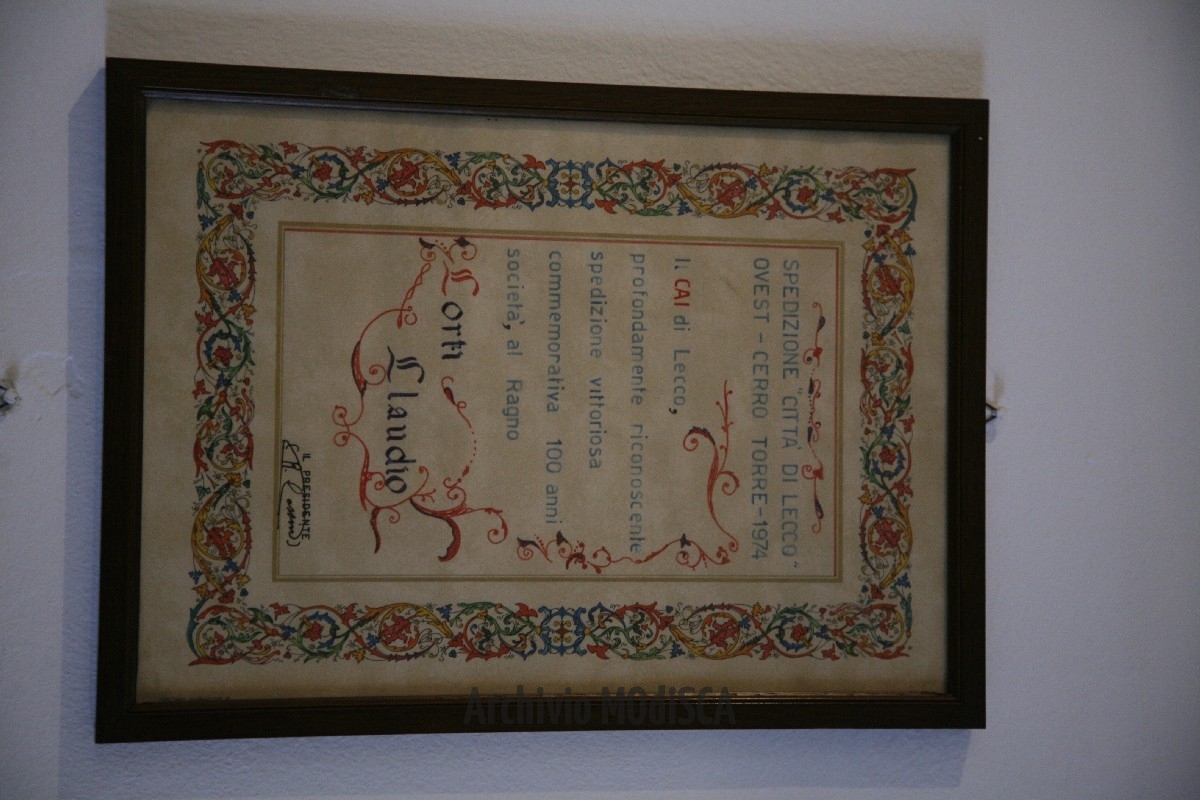 SPEDIZIONE "CITTA' DI LECCO"
OVEST - CERRO TORRE - 1974
Il CAI di Lecco,
profondamente riconoscente
spedizione vittoriosa
commemorativa 100 anni
società, al Ragno
Corti
Claudio
IL PRESIDENTE
Archivio MOdiSCA